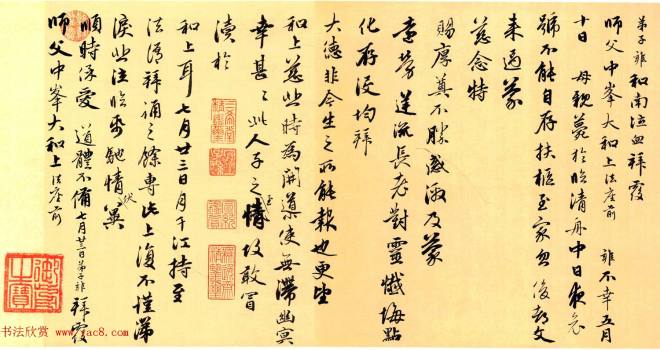 弟子雍和南泣血拜覆
師父中峯大和上法座前 雍不幸五月
十日 母親薨於臨清舟中日夜哀
號不能自存扶柩至家忽後都文
来過蒙
慈念特
賜厚奠不勝感激及蒙
長老對靈懺悔點
化存没均拜
大德非今生之所能報也更望
和上慈悲時為開導使無滯幽冥
幸甚〻此人子之至情故敢冒
瀆於
和上耳七月廿三日月千江持至
法語拜誦之餘專此上復不謹涕
淚悲泣臨紙馳情伏冀
順時保愛 道體不備七月廿三日弟子雍拜覆
師父中峯大和上 法座前
书法欣赏 www.yac8.com